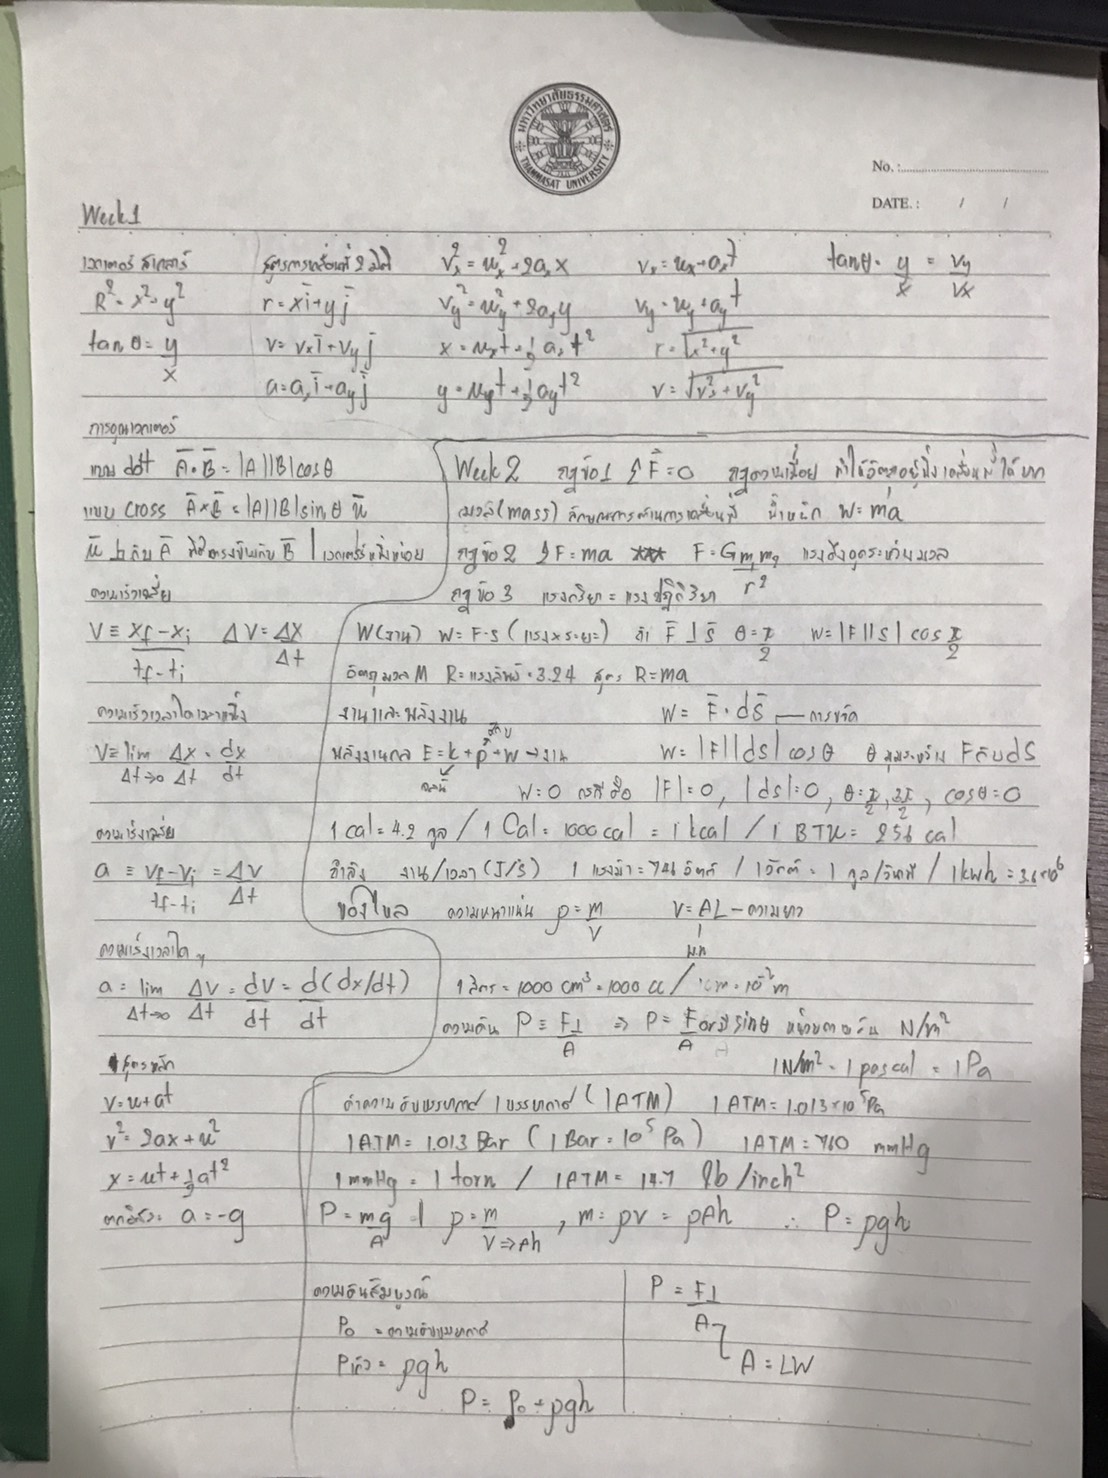 มหาวิทยาลัยธรรมศาสตร์
THAMMASAT UNIVERSITY
No. :
DATE. : / /
Week 1
เวกเตอร์ สเกลาร์
R² = x² + y²
tan θ = y/x
สูตรการเคลื่อนที่ 2 มิติ
r = xi + yj
v = vₓi + v_y j
a = aₓi + a_y j
vₓ² = uₓ² + 2aₓx
v_y² = u_y² + 2a_y y
x = uₓt + ½aₓt²
y = u_y t + ½a_y t²
vₓ = uₓ + aₓt
v_y = u_y + a_y t
r = √(x² + y²)
v = √(vₓ² + v_y²)
tan θ = y/x = v_y/vₓ
การคูณเวกเตอร์
แบบ dot A̅ · B̅ = |A||B| cos θ
แบบ cross A̅ × B̅ = |A||B| sin θ u̅
u̅ ⊥ กับ A̅ B̅ | เวกเตอร์หนึ่งหน่วย
ความเร็วเฉลี่ย
V ≡ (x_f − x_i)/(t_f − t_i) ΔV = Δx/Δt
ความเร็วเวลาใดเวลาหนึ่ง
V = lim Δt→0 Δx/Δt = dx/dt
ความเร่งเฉลี่ย
a ≡ (v_f − v_i)/(t_f − t_i) = ΔV/Δt
ความเร่งเวลาใดๆ
a = lim Δt→0 ΔV/Δt = dV/dt = d(dx/dt)/dt
สูตรหลัก
v = u + at
v² = 2ax + u²
x = ut + ½at²
ตกอิสระ a = −g
Week 2 กฎข้อ 1 Σ F̅ = 0 กฎความเฉื่อย
มวล (mass) ลักษณะการต้านการเคลื่อนที่ น้ำหนัก W = ma
กฎข้อ 2 Σ F = ma *** F = Gm₁m₂/r² แรงดึงดูดระหว่างมวล
กฎข้อ 3 แรงกิริยา = แรงปฏิกิริยา
W (งาน) W = F·s (แรง × ระยะ) ถ้า F̅ ⊥ s̅ θ = π/2 W = |F||s| cos π/2
วัตถุมวล M R = แรงลัพธ์ = 3.24 สูตร R = ma
งานและพลังงาน W = F̅ · ds̅ — การขจัด
พลังงานกล E = k + p + W → งาน
จลน์
ศักย์
W = |F||ds| cos θ θ มุมระหว่าง F กับ ds
W = 0 กรณีคือ |F| = 0, |ds| = 0, θ = π/2, 3π/2, cos θ = 0
1 cal = 4.2 จูล / 1 Cal = 1000 cal = 1 kcal / 1 BTU = 256 cal
กำลัง งาน/เวลา (J/s) 1 แรงม้า = 746 วัตต์ / 1 วัตต์ = 1 จูล/วินาที / 1 kwh = 3.6×10⁶
ของไหล ความหนาแน่น ρ = m/V V = AL — ความยาว
พ.ท.
1 ลิตร = 1000 cm³ = 1000 cc / 1cm = 10⁻² m
ความดัน P ≡ F⊥/A ⇒ P = F sin θ/A N/m²
1 N/m² = 1 pascal = 1 Pa
ค่าความดันบรรยากาศ 1 บรรยากาศ (1 ATM) 1 ATM = 1.013×10⁵ Pa
1 ATM = 1.013 Bar (1 Bar = 10⁵ Pa) 1 ATM = 760 mmHg
1 mmHg = 1 torn / 1 ATM = 14.7 lb/inch²
P = mg/A | ρ = m/V ⇒ Ah , m = ρV = ρAh ∴ P = ρgh
ความดันสัมบูรณ์
P₀ = ความดันบรรยากาศ
Pเกจ = ρgh
P = P₀ + ρgh
P = F⊥/A
A = LW